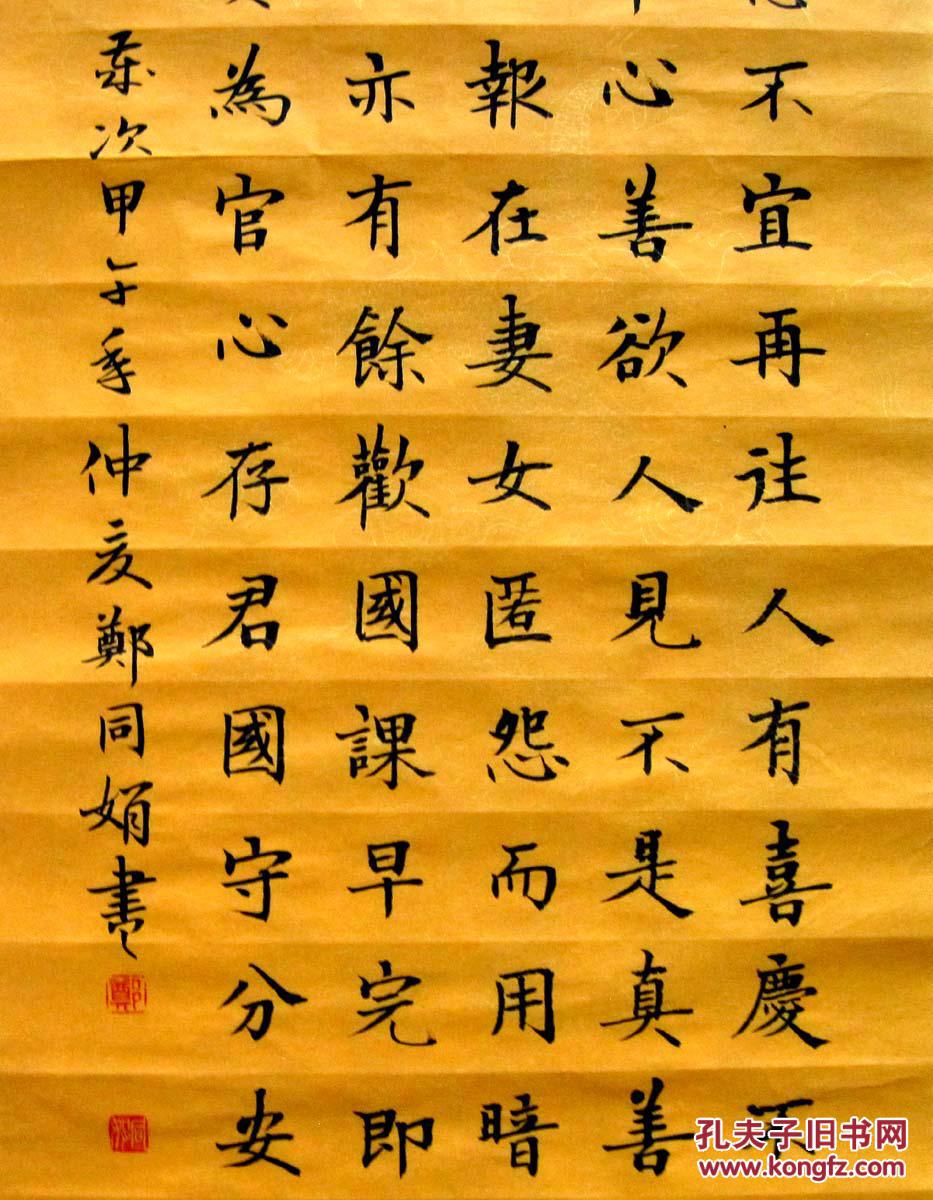 不宜再往人有喜慶不
心善欲人見不是真善
報在妻女匿怨而用暗
亦有餘歡國課早完即
為官心存君國守分安
歲次甲午年仲夏鄭同娟書
鄭
孔夫子旧书网
www.kongfz.com